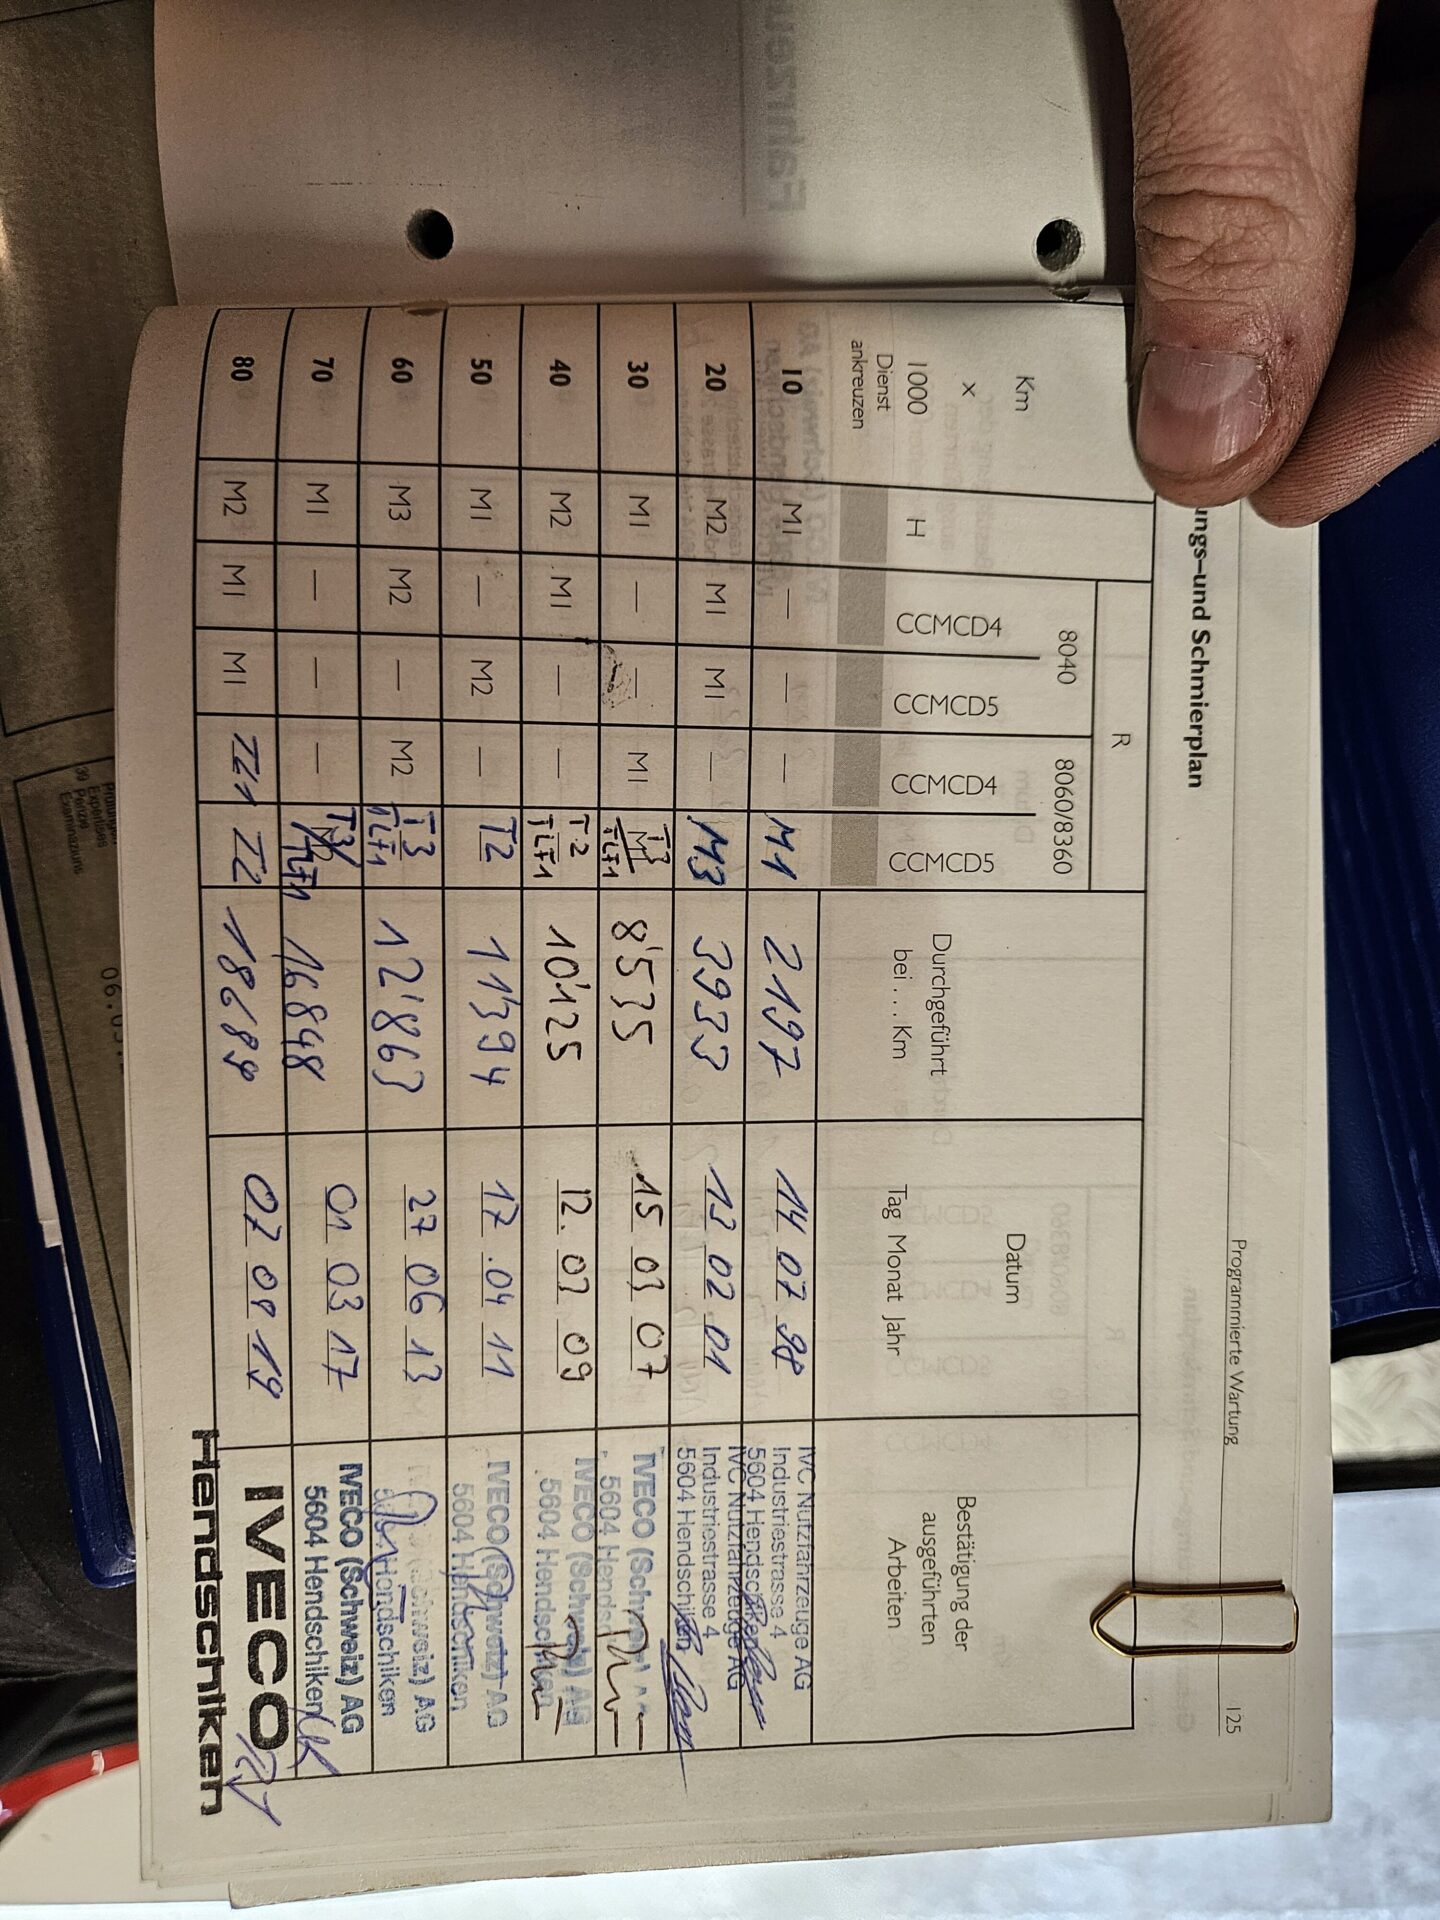 Programmierte Wartung 125
ungs–und Schmierplan
Km
x
1000
Dienst
ankreuzen
H
R
8040
8060/8360
CCMCD4
CCMCD5
CCMCD4
CCMCD5
Durchgeführt
bei . . . Km
Datum
Tag Monat Jahr
Bestätigung der
ausgeführten
Arbeiten
10 M1 — — — M1 2197 14 07 98
IVC Nutzfahrzeuge AG
Industriestrasse 4
5604 Hendschiken
20 M2 M1 M1 — M3 3933 13 02 01
IVC Nutzfahrzeuge AG
Industriestrasse 4
5604 Hendschiken
30 M1 — — M1 T3 M1 TLF1 8'535 15 03 07
IVECO (Schweiz)
5604 Hends
40 M2 M1 — — T2 TLF1 10'125 12. 03 09
IVECO (Schweiz) AG
5604 Hendschiken
50 M1 — M2 — T2 11'394 17 .04 11
IVECO (Schweiz) AG
5604 Hendschiken
60 M3 M2 — M2 T3 TLF1 12'863 27 06 13
(Schweiz) AG
5604 Hendschiken
70 M1 — — — T3/ TLF1 16848 01 03 17
IVECO (Schweiz) AG
5604 Hendschiken
80 M2 M1 M1 T2 18684 07 19
IVECO
Hendschiken
Prüfungen
Expertises
Perizie
Examinaziuns
06.03.